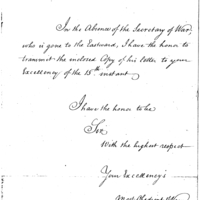 In the Absence of the Secretary of War,
who is gone to the Eastward, I have the honor to
transmit the enclosed Copy of his letter to your
Excellency of the 15th instant
I have the honor to be
Sir
With the highest respect
Your Excellency's
Most Obedient